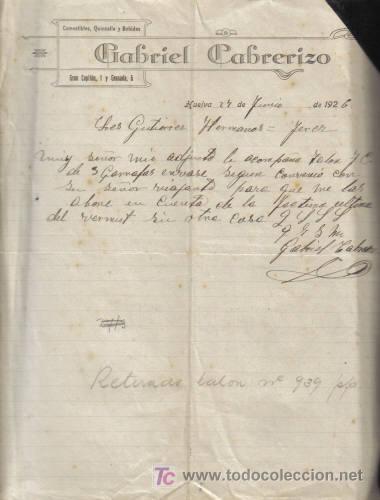 Comestibles, Quincalla y Bebidas
Gabriel Cabrerizo
Gran Capitán, 1 y Granada, 6
Huelva 27 de Junio de 1926
Sres Gutierres Hermanos = Jerez
Muy señor mio adjunto le acompaño talon F.C.
de 3 Garrafas envase segun convenio con
su señor viajante para que me las
abone en cuenta de la factura ultima
del vermut sin otra cosa
Q E S M.
Gabriel Cabrerizo
Retirado talon nº 939 p/p
todocoleccion
www.todocoleccion.net